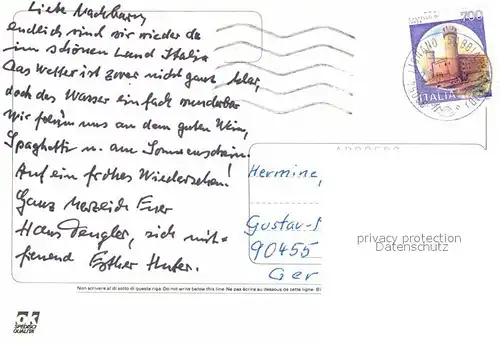 Liebe Nachbarn,
endlich sind wir wieder da
im schönen Land Italia
Das Wetter ist zwar nicht ganz klar,
doch das Wasser einfach wunderbar
Wir freuen uns an dem guten Wein,
Spaghetti u. am Sonnenschein.
Auf ein frohes Wiedersehen!
Ganz herzlich Euer
Hans Dengler, sich mit=
freuend Esther Huter.
700
ITALIA
Hermine,
Gustav-
90455
Ger
privacy protection
Datenschutz
Non scrivere al di sotto di questa riga. Do not write below this line. Ne pas écrire au dessous de cette ligne.
ok
SPEDISCI
QUALITÀ